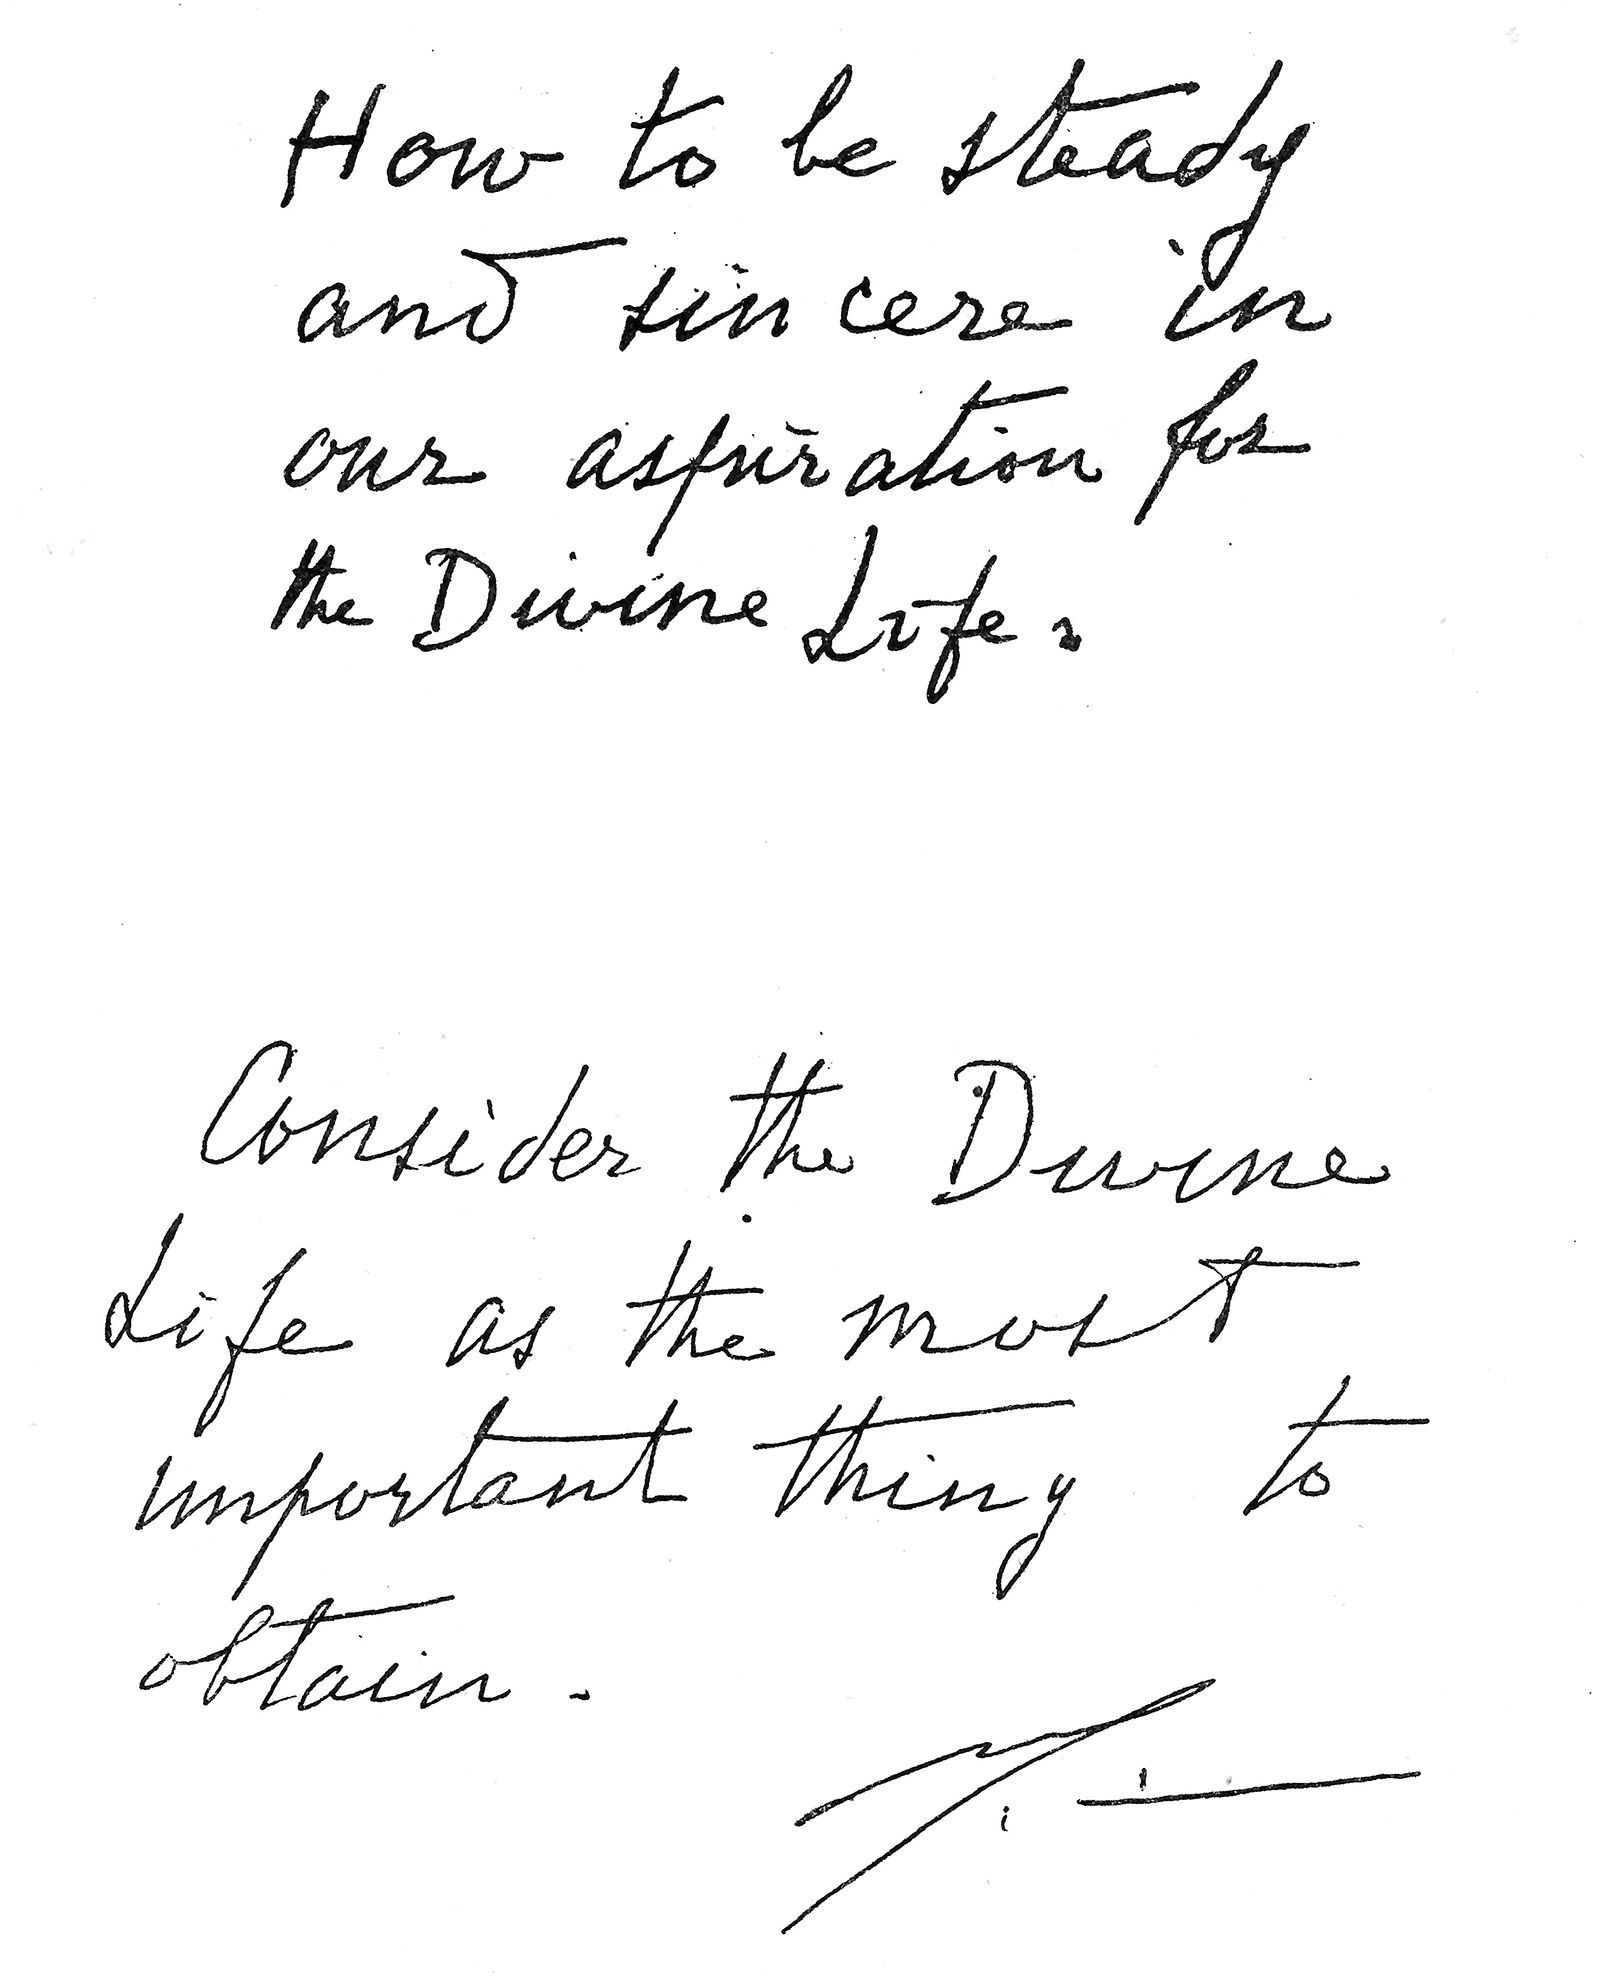 How to be steady
and sincere in
our aspiration for
the Divine Life.
Consider the Divine
Life as the most
important thing to
obtain.